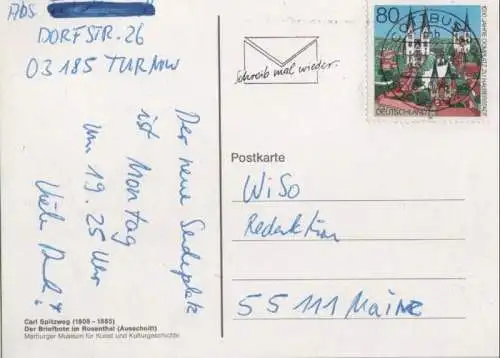 Abs
DORFSTR. 26
03185 TURNOW
Der neue Sendeplatz
ist Montag
um 19.25 Uhr
Vielen Dank!
Carl Spitzweg (1808 - 1885)
Der Briefbote im Rosenthal (Ausschnitt)
Marburger Museum für Kunst und Kulturgeschichte
Schreib mal wieder.
80
COTTBUS
DEUTSCHLAND
Postkarte
WiSo
Redaktion
55111 Mainz